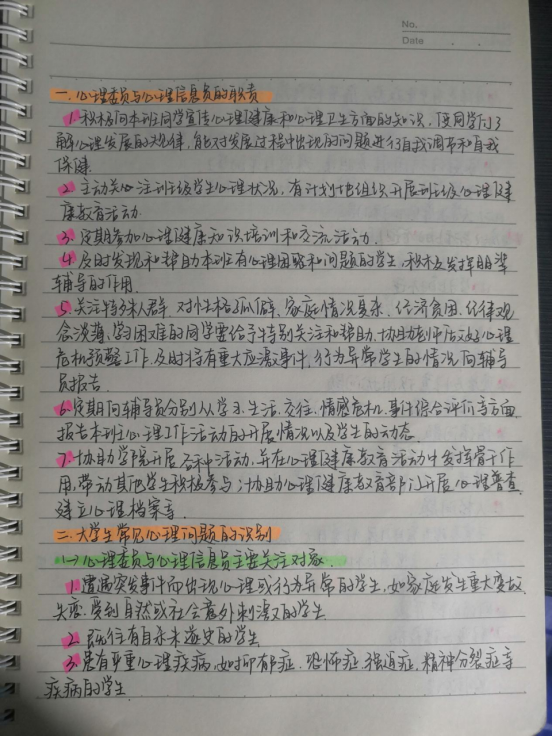 No.
Date
一.心理委员与心理信息员的职责
1.积极向本班同学宣传心理健康和心理卫生方面的知识,使同学们了
解心理发展的规律,能对发展过程中出现的问题进行自我调节和自我
保健.
2.主动关心注班级学生心理状况,有计划地组织开展班级心理健
康教育活动.
3.定期参加心理健康知识培训和交流活动.
4.及时发现和帮助本班有心理困惑和问题的学生,积极发挥朋辈
辅导的作用.
5.关注特殊人群,对性格孤僻、家庭情况复杂、经济贫困、纪律观
念淡薄、学习困难的同学要给予特别关注和帮助,协助老师做好心理
危机预警工作,及时将有重大应激事件,行为异常学生的情况向辅导
员报告.
6.定期向辅导员分别从学习、生活、交往、情感危机、事件综合评价等方面
报告本班心理工作活动的开展情况以及学生的动态.
7.协助学院开展各种活动,并在心理健康教育活动中发挥骨干作
用,带动其他学生积极参与;协助心理健康教育部门开展心理普查
建立心理档案等.
二.大学生常见心理问题的识别
(一)心理委员与心理信息员主要关注对象.
1.遭遇突发事件而出现心理或行为异常的学生,如家庭发生重大变故,
失恋.受到自然或社会意外刺激的学生
2.既往有自杀未遂史的学生
3.患有严重心理疾病,如抑郁症.恐怖症.强迫症.精神分裂症等
疾病的学生.